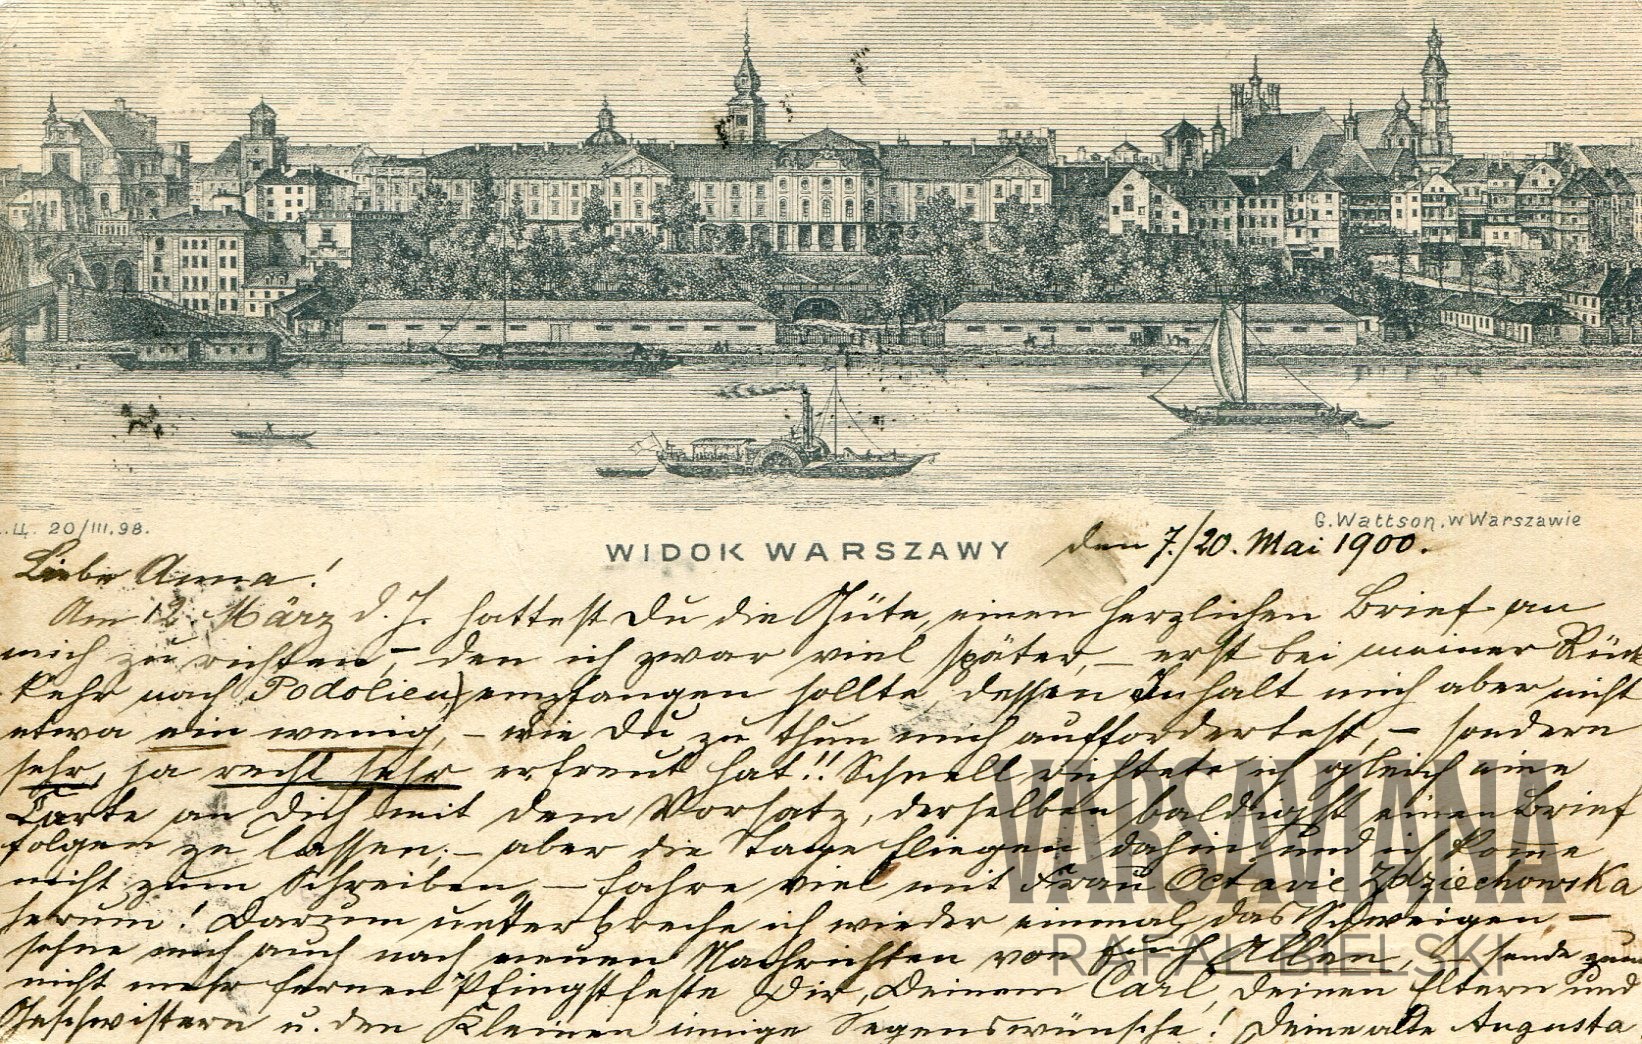 .Ц. 20/III.98.
G. Wattson, w Warszawie
WIDOK WARSZAWY
den 7./20. Mai 1900.
Liebe Anna!
Am 12. März d. J. hattest Du die Güte, einen herzlichen Brief an
mich zu richten, – den ich zwar viel später, – erst bei meiner Rück
kehr nach Podolien, empfangen sollte, dessen Inhalt mich aber nicht
etwa ein wenig, – wie Du zu thun mich auffordertest, – sondern
sehr, ja recht sehr erfreut hat!! Schnell richtete ich gleich eine
Carte an Dich mit dem Vorsatz, derselben baldigst einen Brief
folgen zu lassen; – aber die Tage fliegen dahin und ich kome
nicht zum Schreiben, – fahre viel mit Frau Octavie Zdziechowska
herum! Darum unterbreche ich wieder einmal das Schweigen –
sehne mich auch nach neuen Nachrichten von Euch Allen, – sende zum
nicht mehr fernen Pfingstfeste Dir, Deinem Carl, Deinen Eltern und
Geschwistern u. den Kleinen innige Segenswünsche! Deine alte Augusta
VARSAVIANA
RAFAŁ BIELSKI